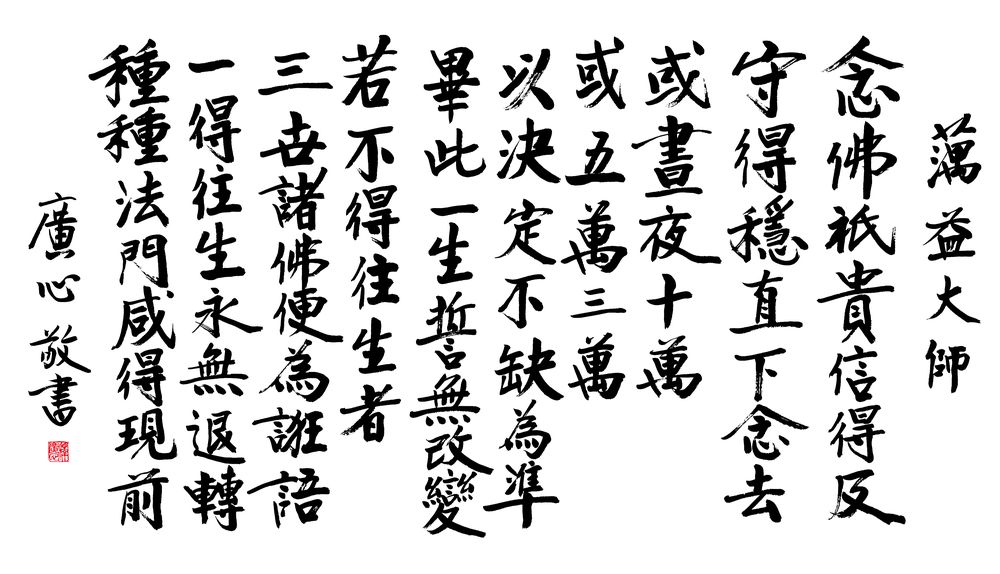 蕅益大師
念佛祇貴信得反
守得穩直下念去
或晝夜十萬
或五萬三萬
以決定不缺為準
畢此一生誓無改變
若不得往生者
三世諸佛便為誑語
一得往生永無退轉
種種法門咸得現前
廣心敬書